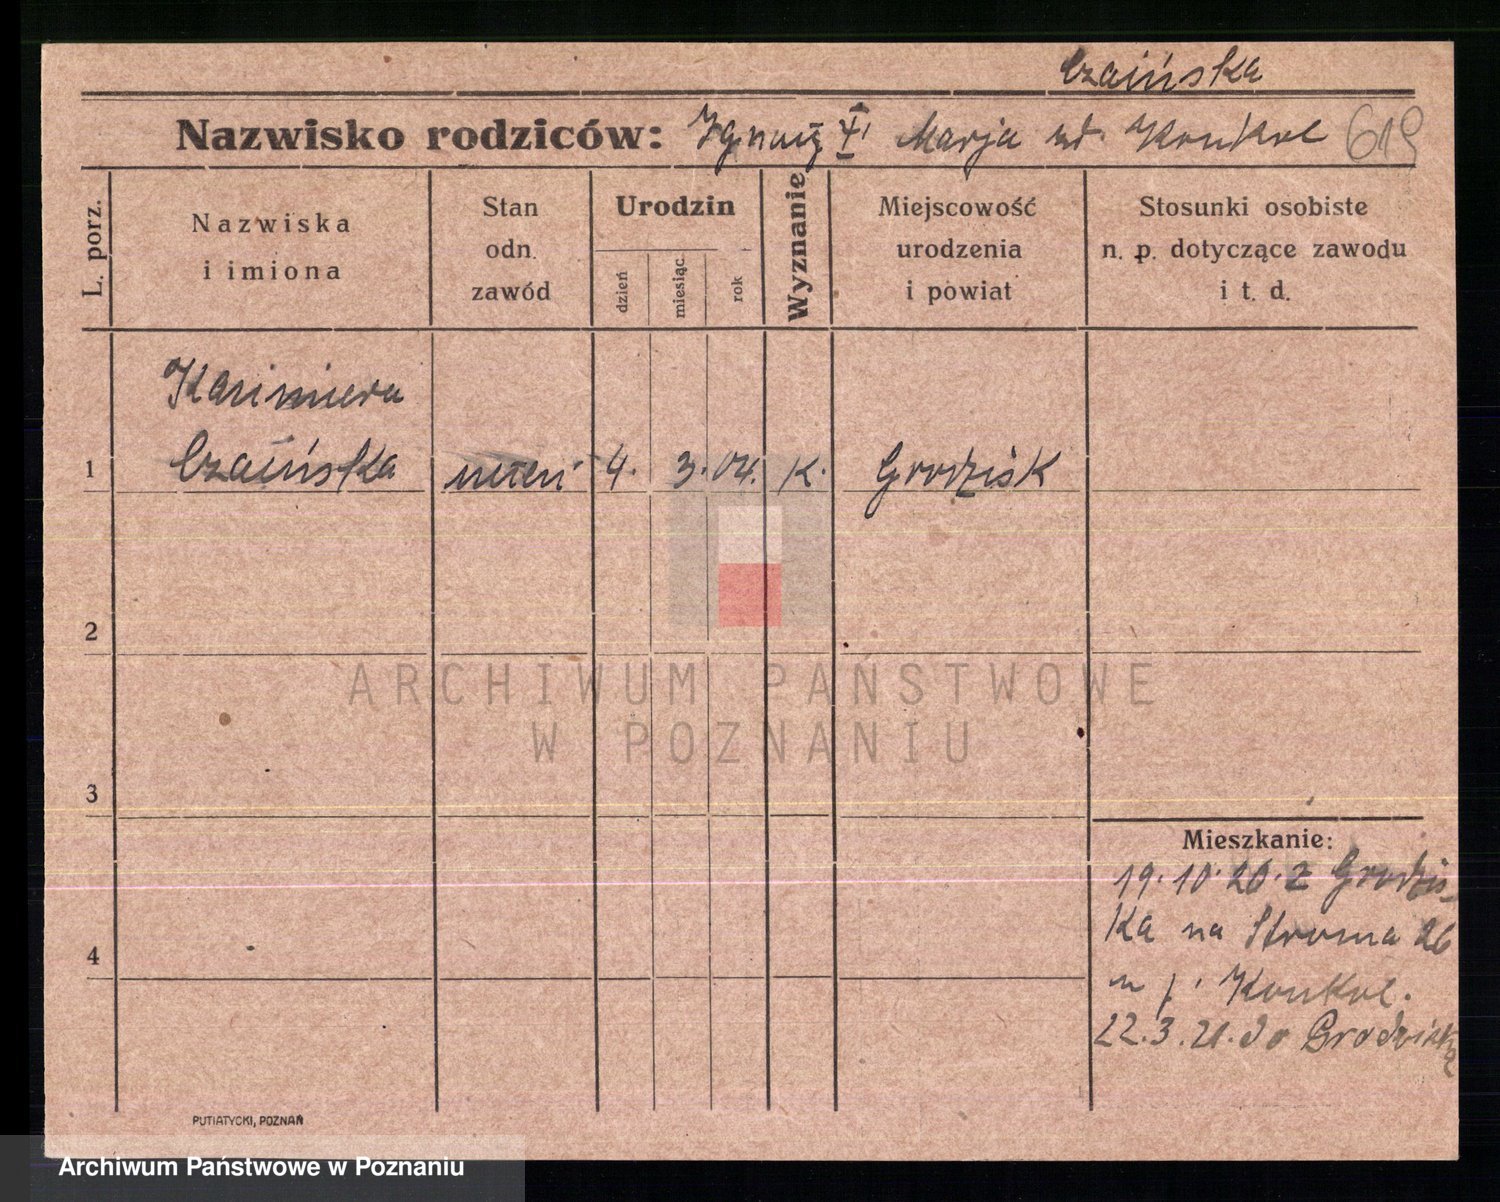 Czaińska
Nazwisko rodziców: Ignacy Marja ur. Konkol 619
L. porz.
Nazwiska i imiona
Stan odn. zawód
Urodzin
dzień
miesiąc
rok
Wyznanie
Miejscowość urodzenia i powiat
Stosunki osobiste n. p. dotyczące zawodu i t. d.
Kazimiera
1 Czaińska 4. 3. 04. K. Grodzisk
2
3
4
Mieszkanie:
19.10.20. z Grodzis-
ka na Stroma 26
u p. Konkol.
22.3.21. do Grodziska
PUTIATYCKI, POZNAŃ
ARCHIWUM PAŃSTWOWE
W POZNANIU
Archiwum Państwowe w Poznaniu